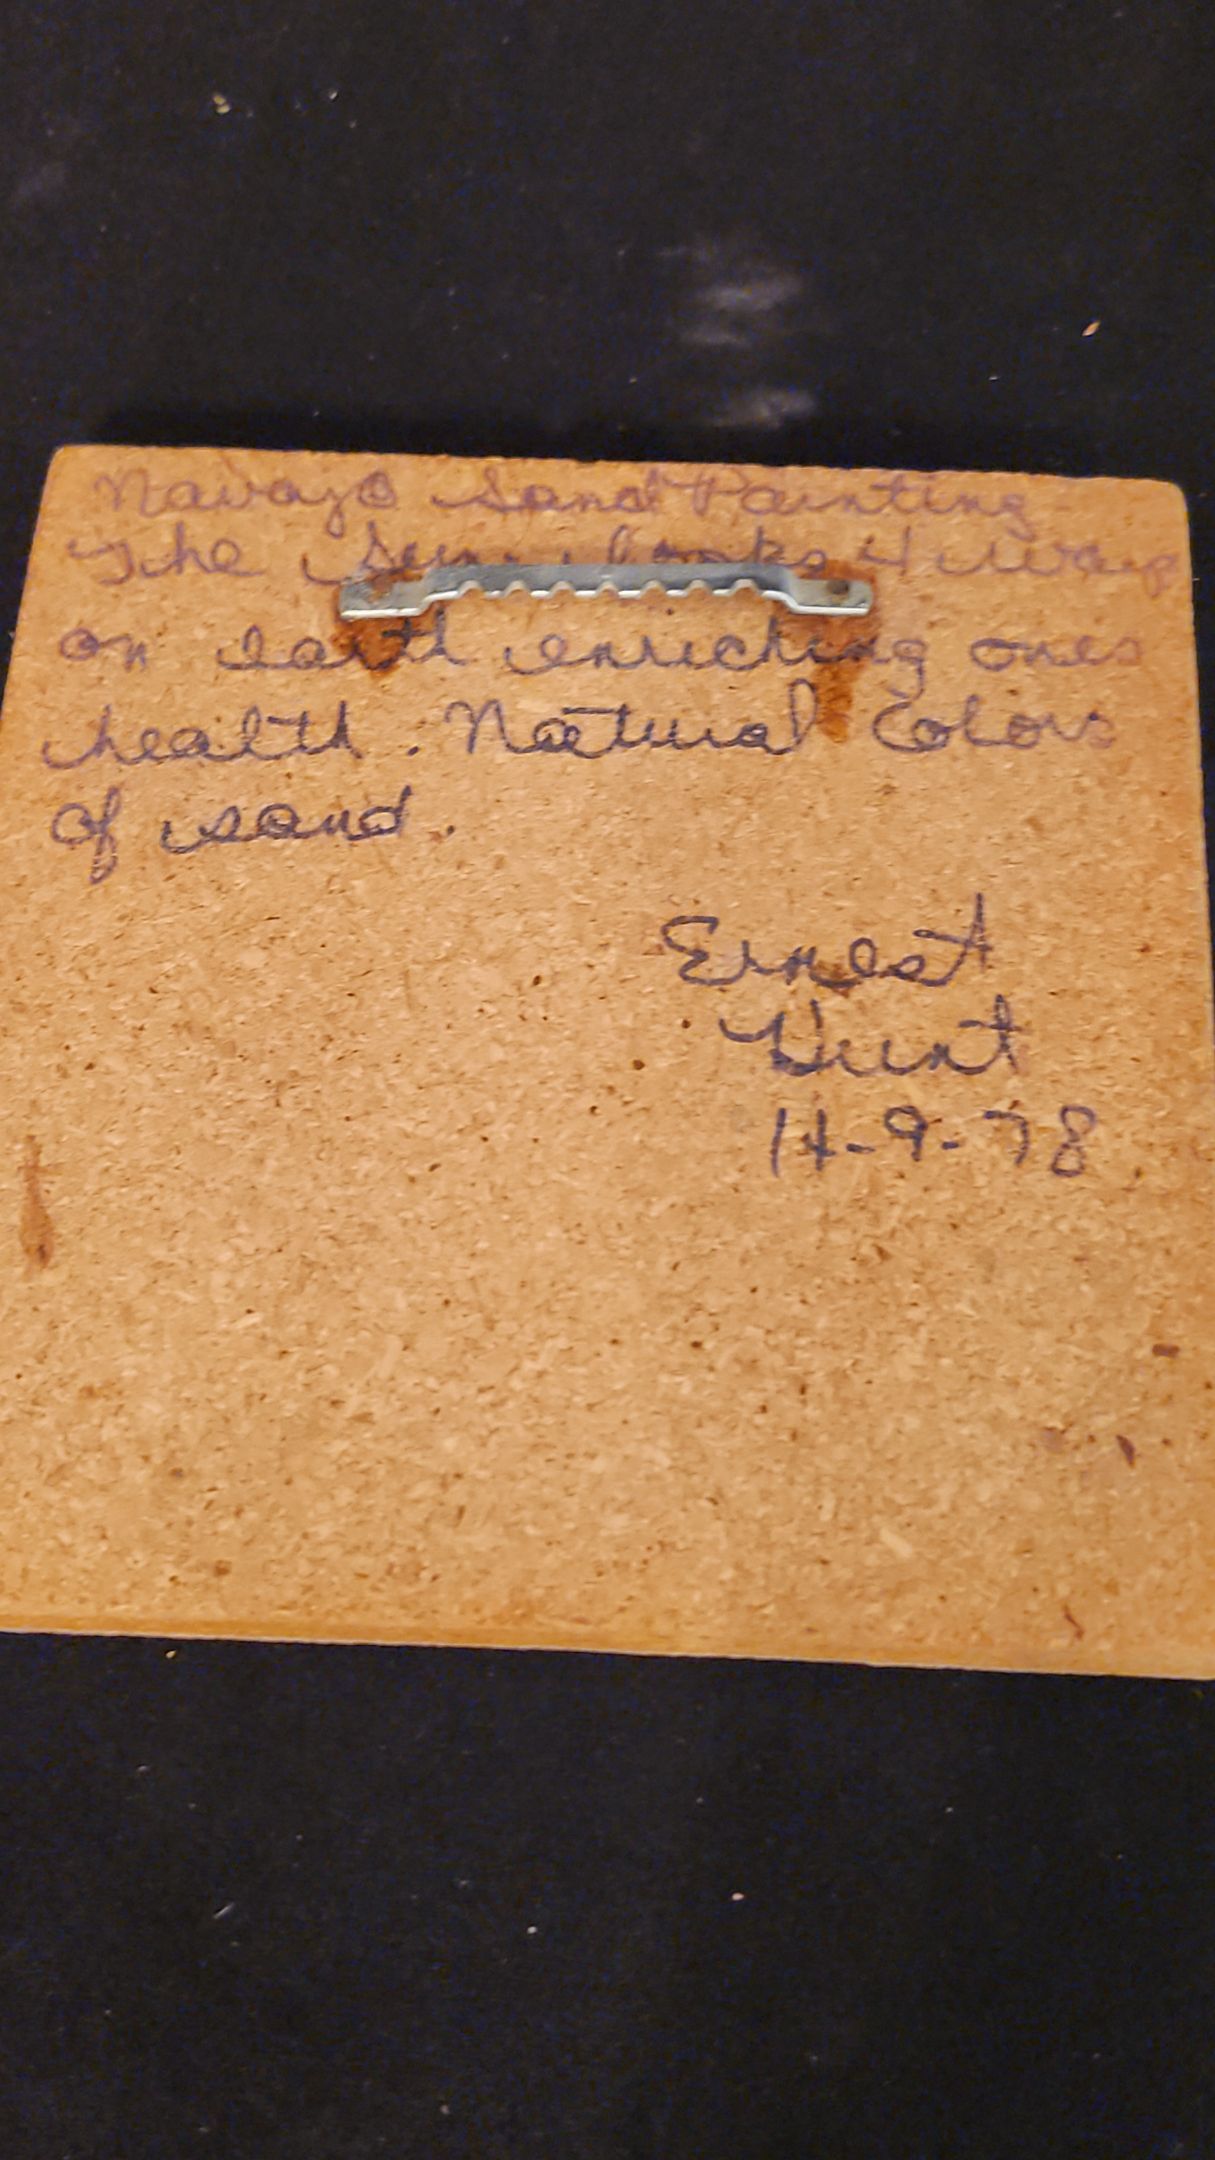 Navajo Sand Painting
The Sun looks 4 ways
on earth enriching ones
health. Natural Colors
of sand.
Ernest
Hunt
11-9-78